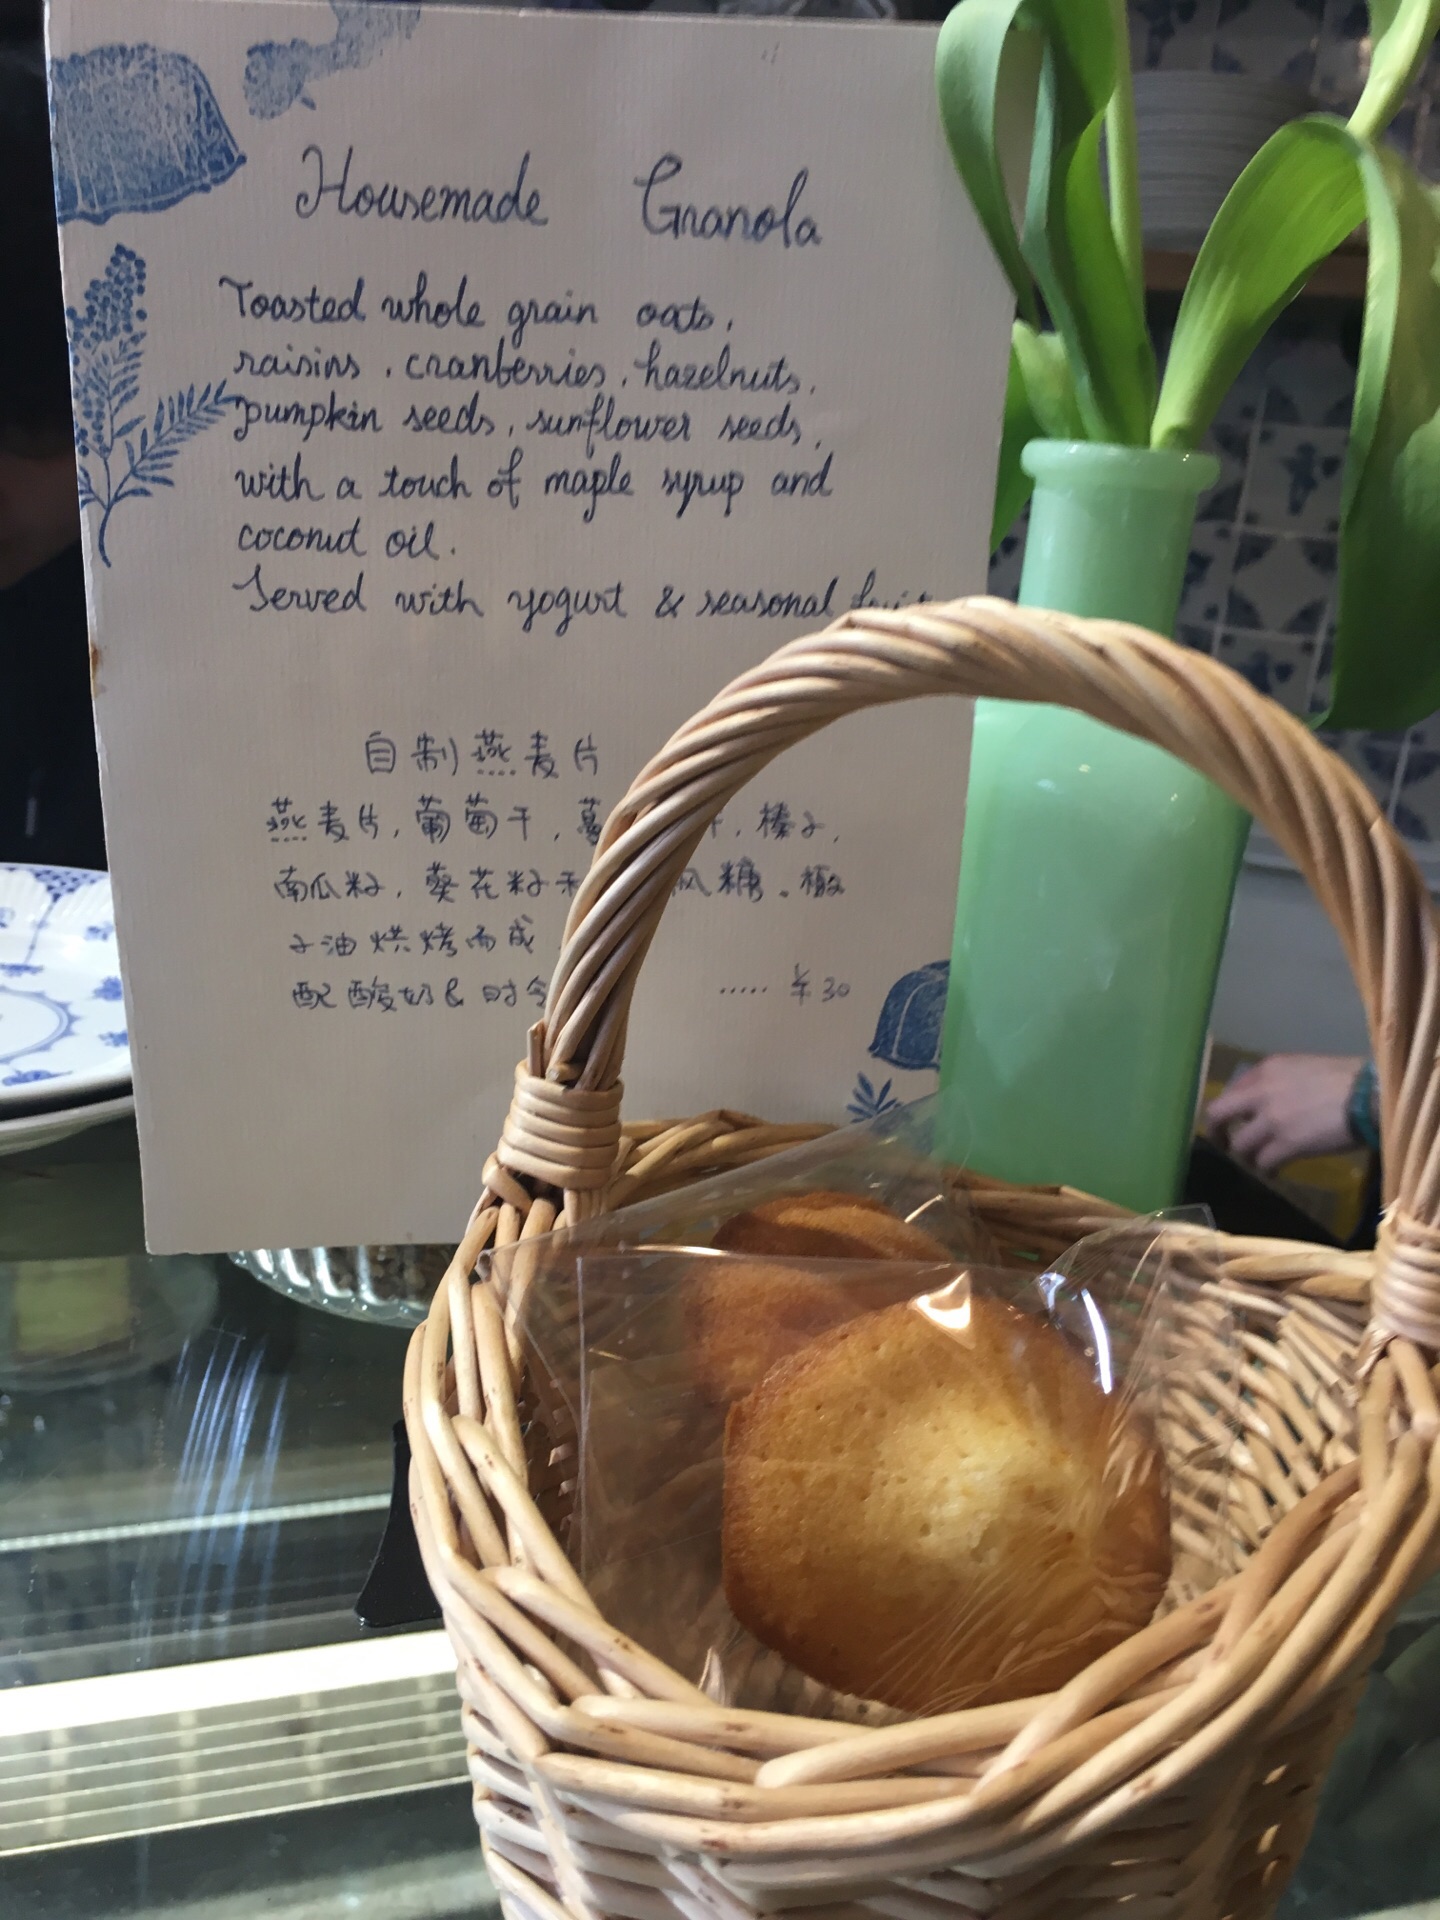 Housemade Granola
Toasted whole grain oats,
raisins, cranberries, hazelnuts,
pumpkin seeds, sunflower seeds,
with a touch of maple syrup and
coconut oil.
Served with yogurt & seasonal
自制燕麦片
燕麦片,葡萄干,蔓 干,榛子,
南瓜籽,葵花籽和 枫糖。椒
子油烘烤而成
配酸奶&时令 ..... ¥30